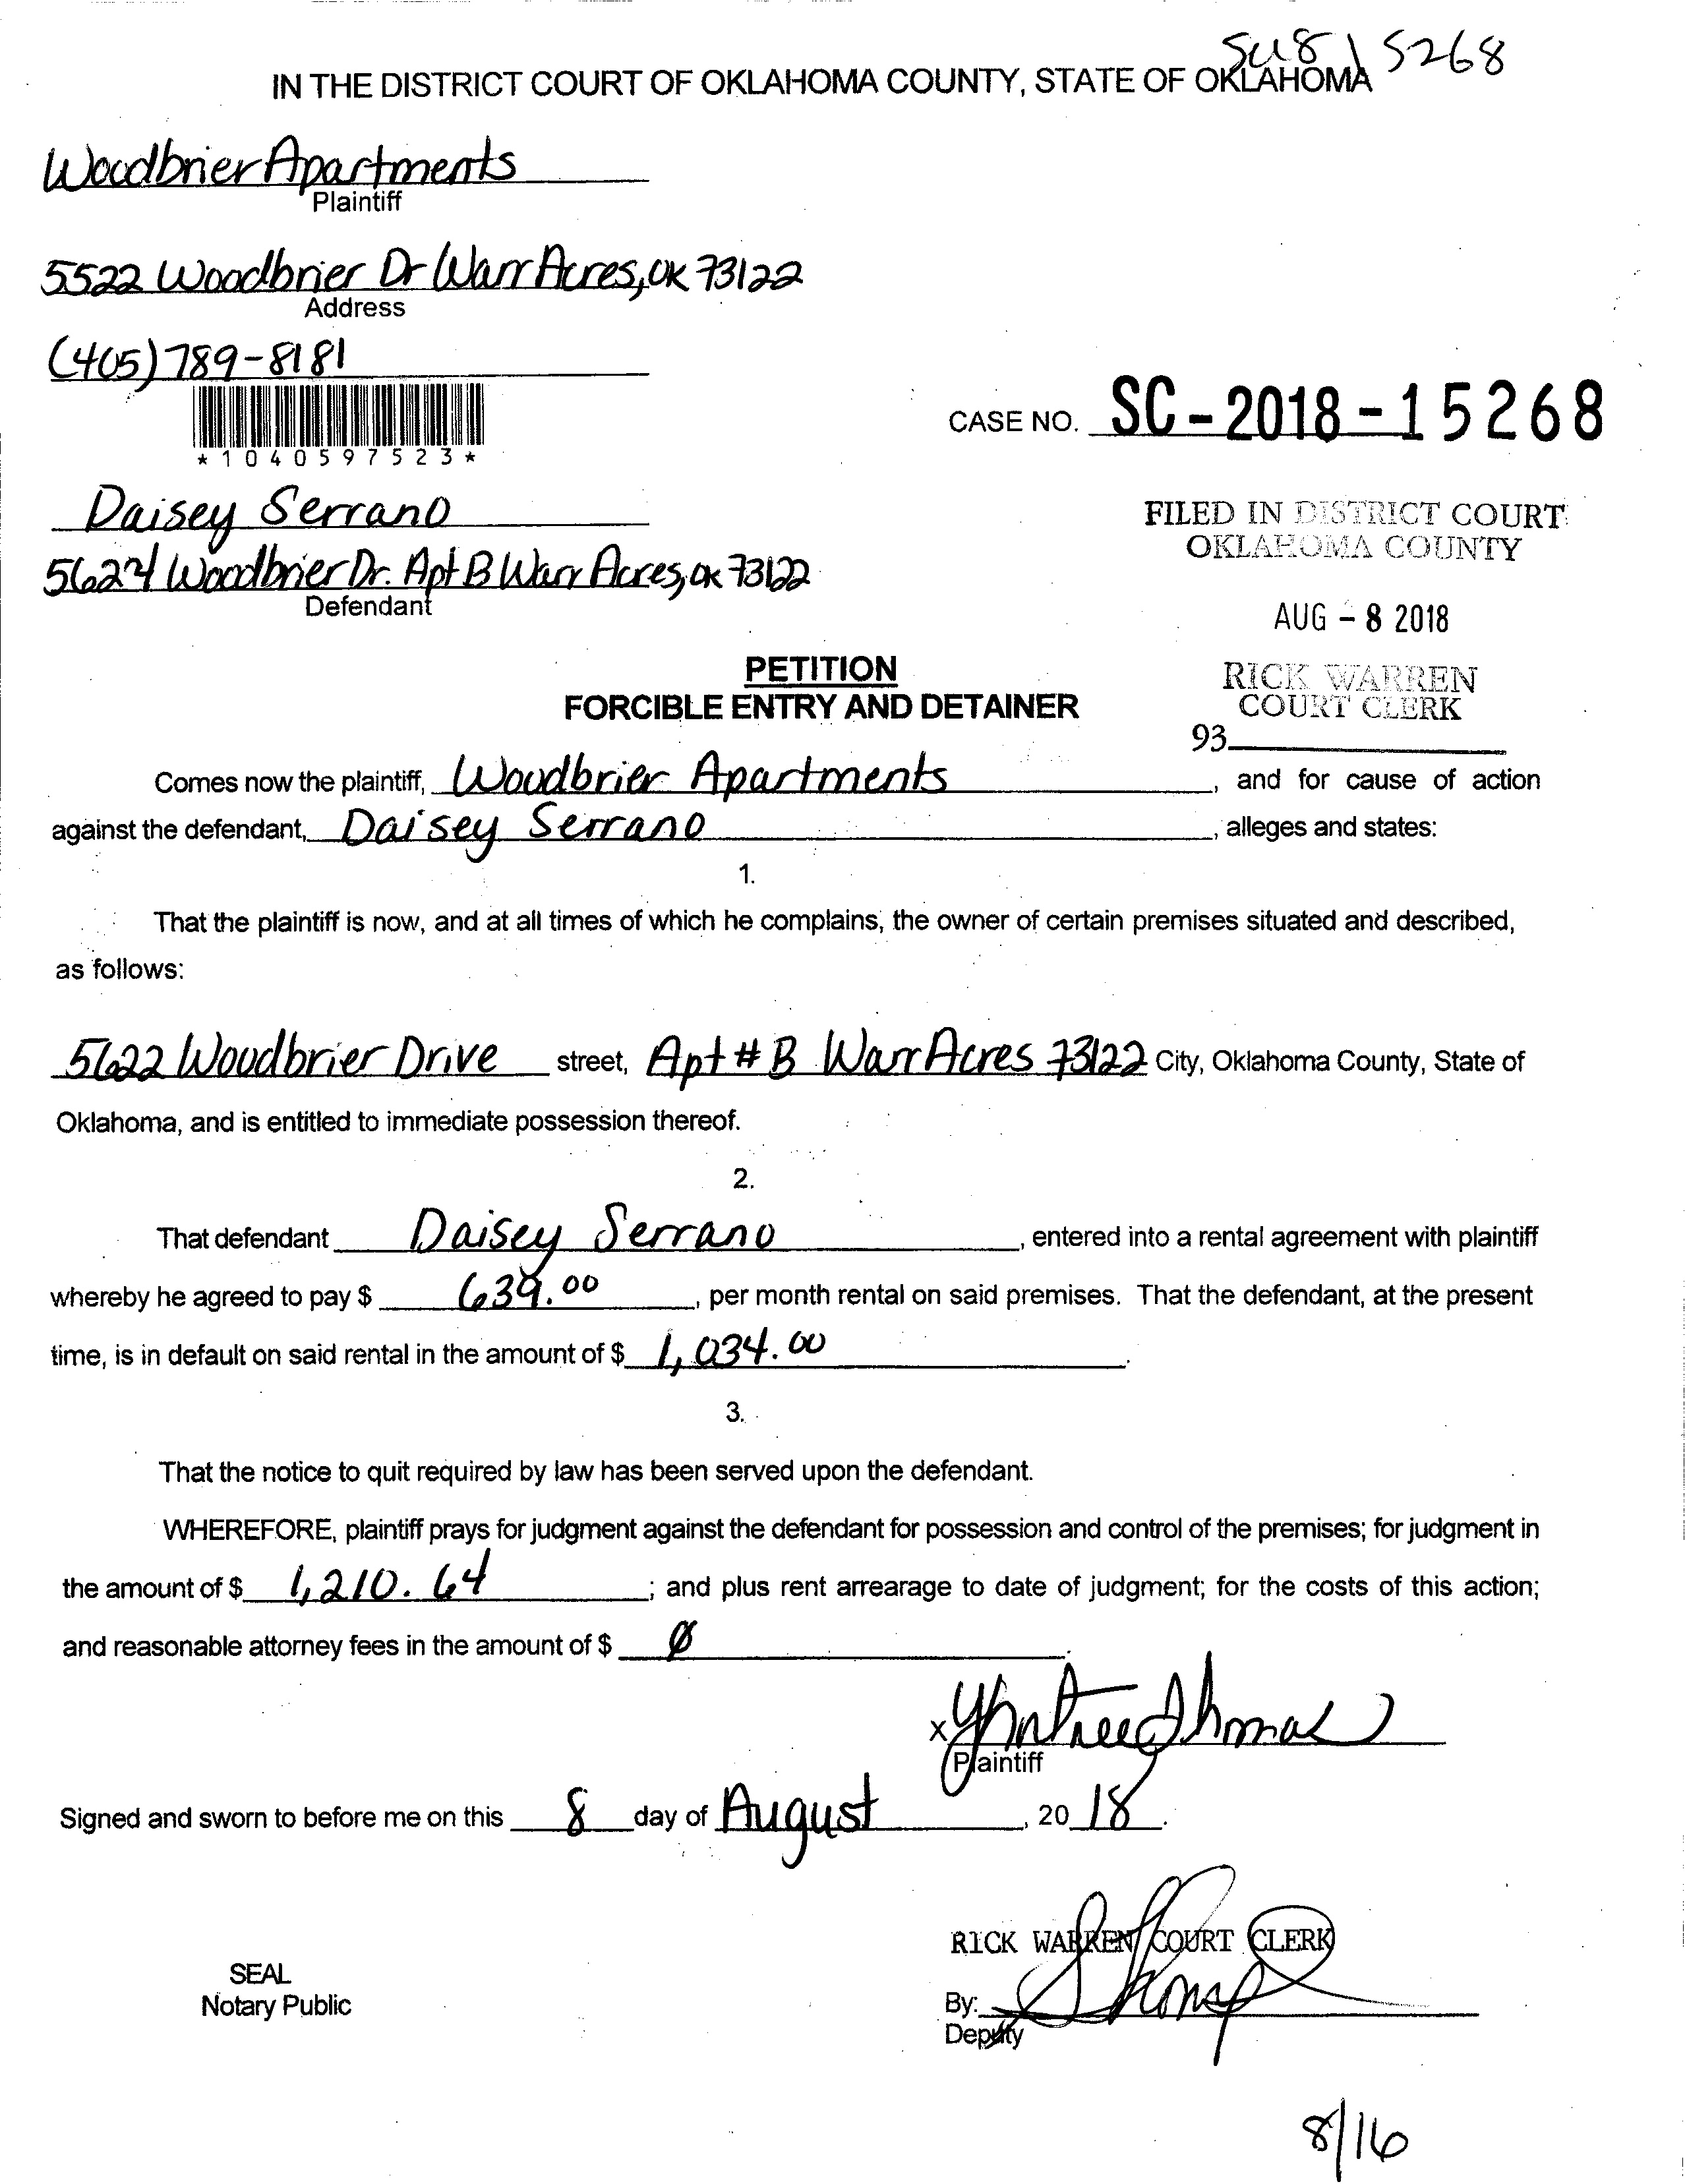 SC18 15268
IN THE DISTRICT COURT OF OKLAHOMA COUNTY, STATE OF OKLAHOMA
Woodbrier Apartments
Plaintiff
5522 Woodbrier Dr Warr Acres, OK 73122
Address
(405) 789-8181
*1040597523*
CASE NO. SC-2018-15268
Daisey Serrano
FILED IN DISTRICT COURT
OKLAHOMA COUNTY
Woodbrier Dr. Apt B Warr Acres, OK 73122
Defendant
AUG - 8 2018
PETITION
FORCIBLE ENTRY AND DETAINER
RICK WARREN
COURT CLERK
93
Comes now the plaintiff, Woodbrier Apartments, and for cause of action
against the defendant, Daisey Serrano, alleges and states:
1.
That the plaintiff is now, and at all times of which he complains, the owner of certain premises situated and described,
as follows:
5622 Woodbrier Drive street, Apt # B Warr Acres 73122 City, Oklahoma County, State of
Oklahoma, and is entitled to immediate possession thereof.
2.
That defendant Daisey Serrano, entered into a rental agreement with plaintiff
whereby he agreed to pay $ 639.00, per month rental on said premises. That the defendant, at the present
time, is in default on said rental in the amount of $ 1,034.00.
3.
That the notice to quit required by law has been served upon the defendant.
WHEREFORE, plaintiff prays for judgment against the defendant for possession and control of the premises; for judgment in
the amount of $ 1,210.64; and plus rent arrearage to date of judgment; for the costs of this action;
and reasonable attorney fees in the amount of $ Ø.
x
Plaintiff
Signed and sworn to before me on this 8 day of August, 20 18.
RICK WARREN COURT CLERK
SEAL
Notary Public
By:
Deputy
8/16